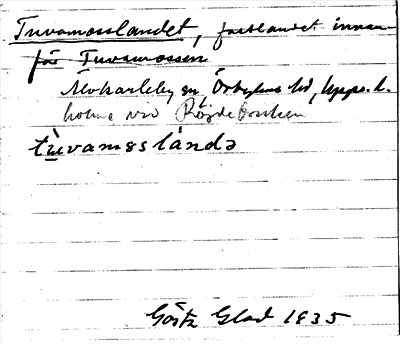 Tuvamosslandet, fastlandet innan-
för Tuvamossen
Älvkarleby sn, Örbyhus hd, Upps. l.
holme vid
tùvamɷslándə
Götz Glad 1935